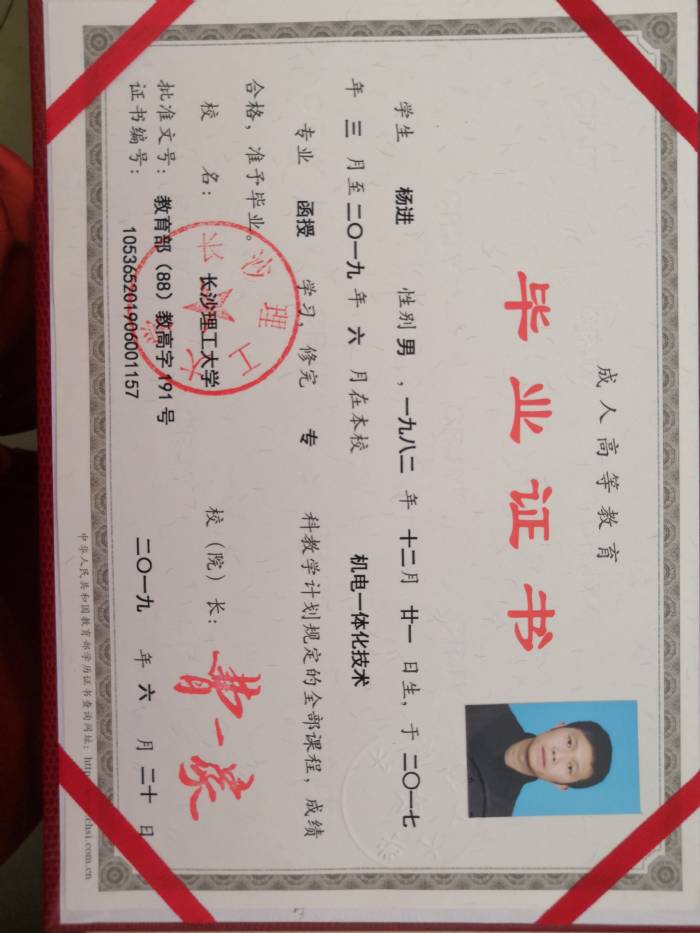 成人高等教育
毕业证书
学生 杨进 性别 男 ，一九八二 年 十二月 廿一 日生，于 二〇一七
年 三 月至 二〇一九 年 六 月在本校 机电一体化技术
专业 函授 学习，修完 专 科教学计划规定的全部课程，成绩
合格，准予毕业。
校 名： 长沙理工大学 校（院）长：
批准文号： 教育部（88）教高字191号
证书编号： 105365201906001157 二〇一九 年 六 月 二十 日
长沙理工大
中华人民共和国教育部学历证书查询网址：
chsi.com.cn